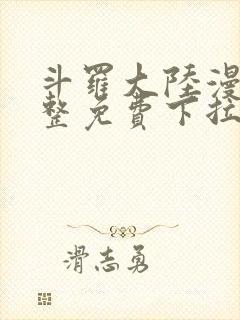 斗羅大陸漫
整免費下拉
滑志勇